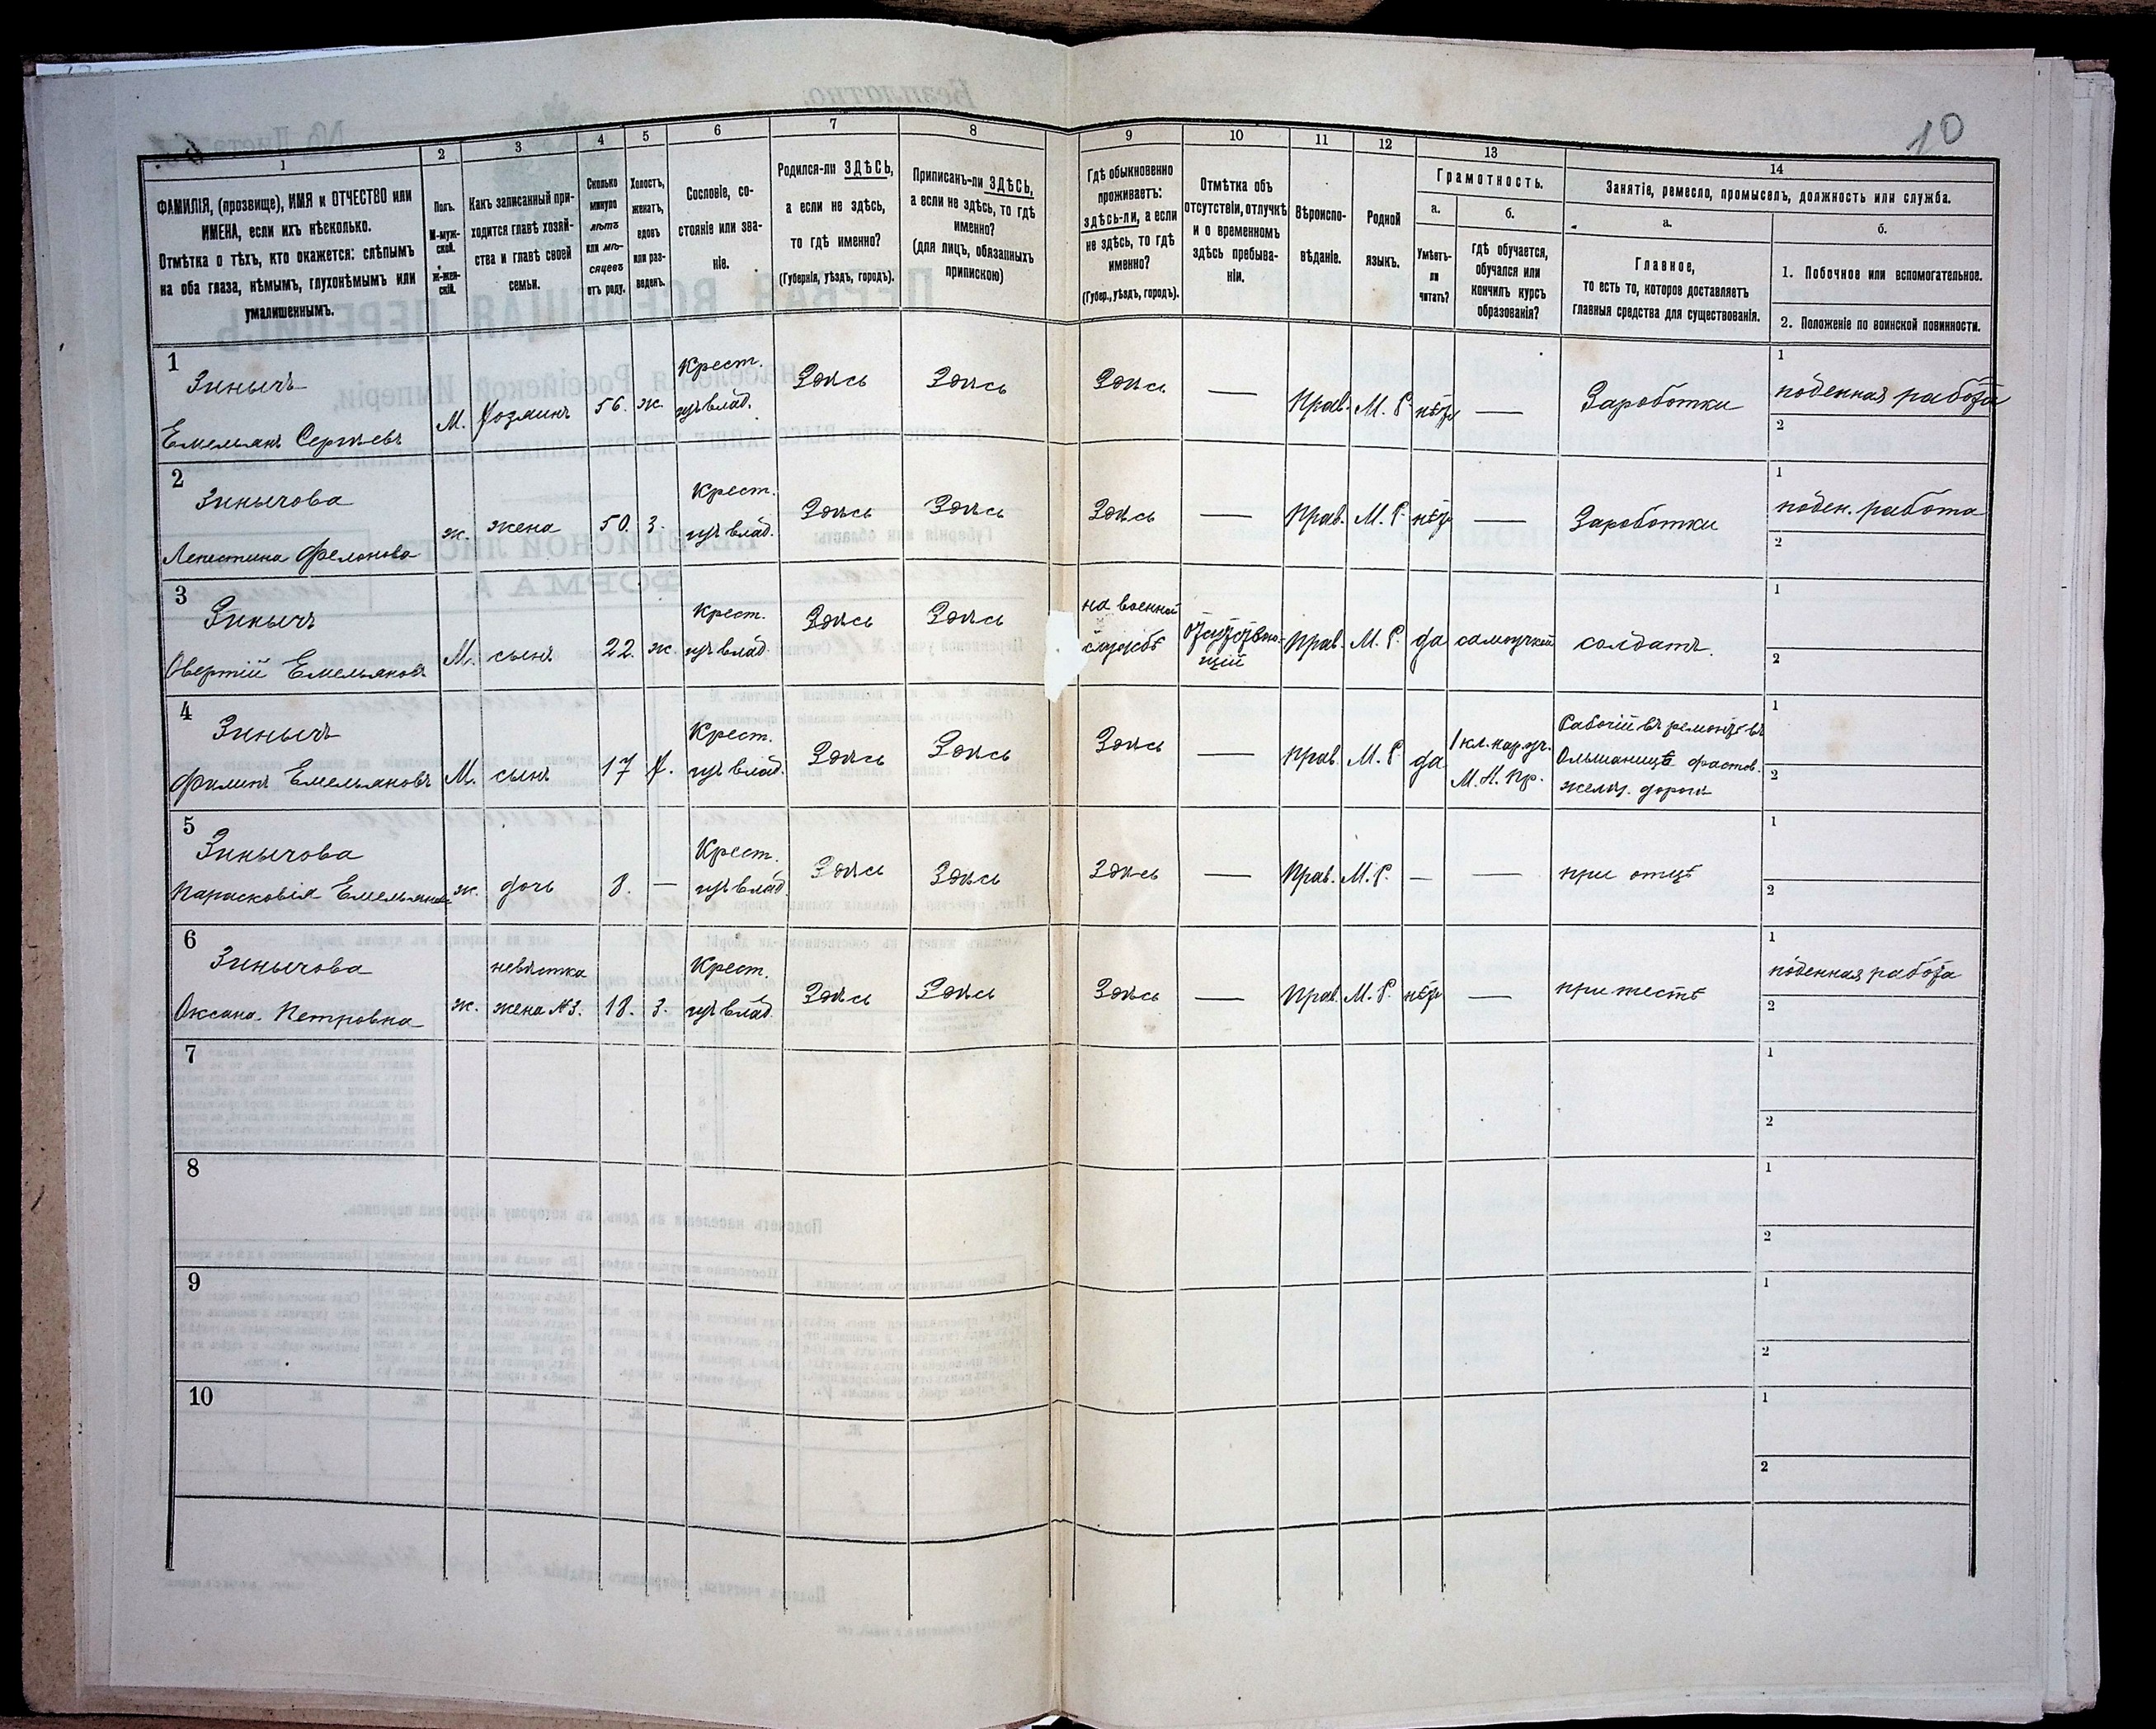 10
1
2
3
4
5
6
7
8
9
10
11
12
13
14
ФАМИЛІЯ, (прозвище), ИМЯ и ОТЧЕСТВО или
ИМЕНА, если ихъ нѣсколько.
Отмѣтка о тѣхъ, кто окажется: слѣпымъ
на оба глаза, нѣмымъ, глухонѣмымъ или
умалишеннымъ.
Полъ.
М-муж-
ской.
Ж-жен-
скій.
Какъ записанный при-
ходится главѣ хозяй-
ства и главѣ своей
семьи.
Сколько
минуло
лѣтъ
или мѣ-
сяцевъ
отъ роду.
Холостъ,
женатъ,
вдовъ
или раз-
веденъ.
Сословіе, со-
стояніе или зва-
ніе.
Родился-ли ЗДѢСЬ,
а если не здѣсь,
то гдѣ именно?
(Губернія, уѣздъ, городъ).
Приписанъ-ли ЗДѢСЬ,
а если не здѣсь, то гдѣ
именно?
(для лицъ, обязанныхъ
припискою)
Гдѣ обыкновенно
проживаетъ:
здѣсь-ли, а если
не здѣсь, то гдѣ
именно?
(Губер., уѣздъ, городъ).
Отмѣтка объ
отсутствіи, отлучкѣ
и о временномъ
здѣсь пребыва-
ніи.
Вѣроиспо-
вѣданіе.
Родной
языкъ.
Грамотность.
а.
Умѣетъ-
ли
читать?
б.
Гдѣ обучается,
обучался или
кончилъ курсъ
образованія?
Занятіе, ремесло, промыселъ, должность или служба.
а.
Главное,
то есть то, которое доставляетъ
главныя средства для существованія.
б.
1. Побочное или вспомогательное.
2. Положеніе по воинской повинности.
1
Зинычъ
Емельянъ Сергѣевъ
М.
Хозяинъ
56.
ж.
Крест.
изъ влад.
Здѣсь
Здѣсь
Здѣсь
—
Прав.
М. Р.
нѣтъ
—
Зароботки
1
поденная работа
2
2
Зинычова
ж.
жена
50.
З.
Крест.
изъ влад.
Здѣсь
Здѣсь
Здѣсь
—
Прав.
М. Р.
нѣтъ
—
Зароботки
1
поден. работа
2
3
Зинычъ
Овертій Емельяновъ
М.
сынъ
22.
ж.
Крест.
изъ влад.
Здѣсь
Здѣсь
на военной
службѣ
отсутствую-
щій
Прав.
М. Р.
да
самоучкой
солдатъ.
1
2
4
Зинычъ
Филипъ Емельяновъ
М.
сынъ
17
Х.
Крест.
изъ влад.
Здѣсь
Здѣсь
Здѣсь
—
Прав.
М. Р.
да
1 кл. нар. уч.
М. Н. Пр.
Рабочій въ ремонтѣ въ
Ольшаницѣ фастов.
желѣз. дороги
1
2
5
Зинычова
Парасковія Емельянов.
ж.
дочь
8.
—
Крест.
изъ влад.
Здѣсь
Здѣсь
Здѣсь
—
Прав.
М. Р.
—
—
при отцѣ
1
2
6
Зинычова
Оксана Петровна
ж.
невѣстка
жена №3.
18.
З.
Крест.
изъ влад.
Здѣсь
Здѣсь
Здѣсь
—
Прав.
М. Р.
нѣтъ
—
при тестѣ
1
поденная работа
2
7
1
2
8
1
2
9
1
2
10
1
2